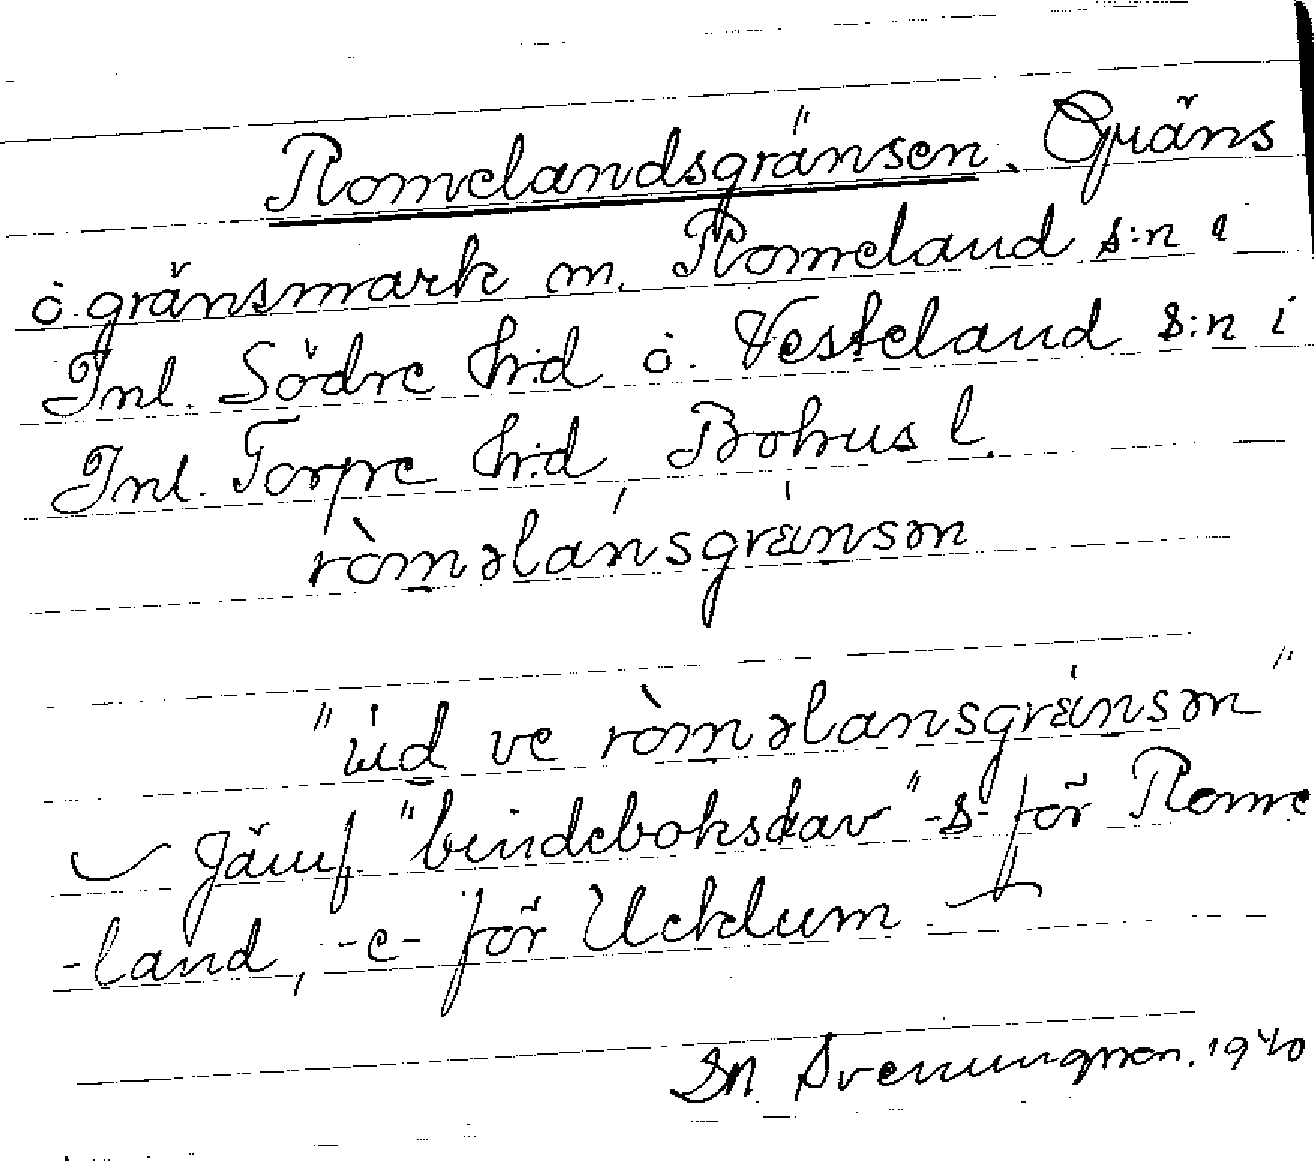 Romelandsgränsen. Gräns
o. gränsmark m. Romeland s:n i
Inl. Södre hrd o. Vesteland s:n i
Inl. Torpe hrd, Bohus l.
ròməlánsgräinsən
"ùd ve ròməlansgräinsən"
Jämf. "bindeboksdav" -s- för Rome
-land, -e- för Ucklum
Sn. Svenungsson. 1940